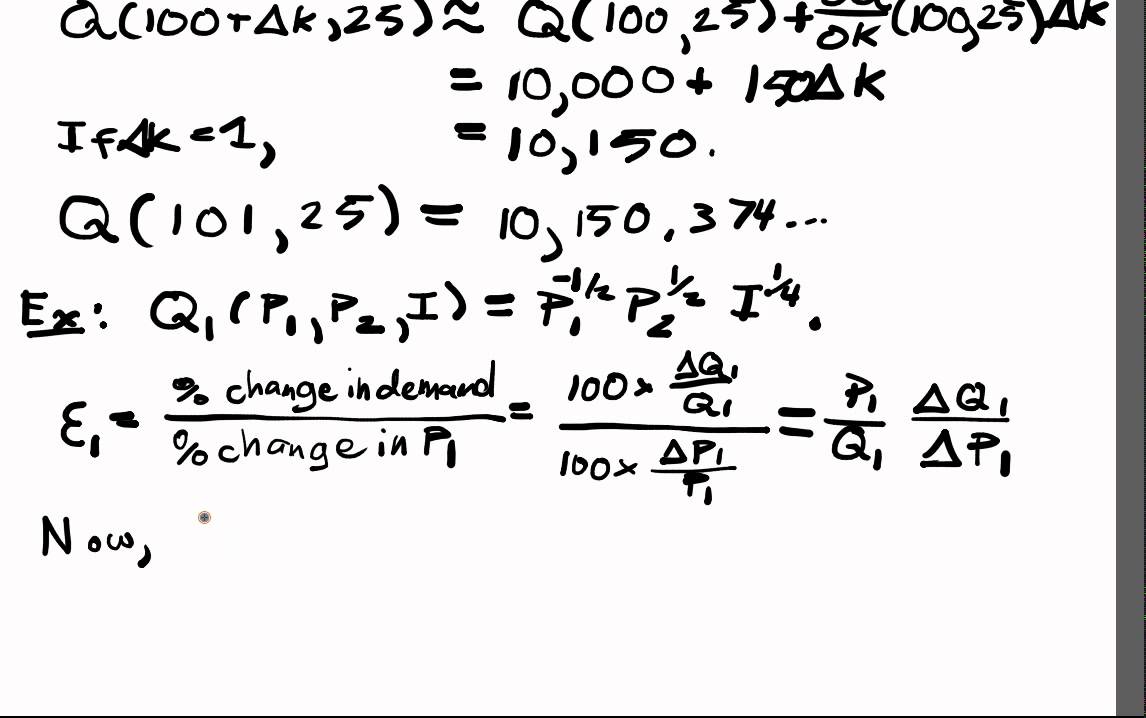 Q(100+Δk,25) ≈ Q(100,25)+∂Q/∂K(100,25)Δk
= 10,000 + 150Δk
If Δk=1, = 10,150.
Q(101,25) = 10,150.374...
Ex: Q₁(P₁,P₂,I) = P₁^-1/2 P₂^1/2 I^1/4.
ε₁ = % change in demand / % change in P₁ = (100 × ΔQ₁/Q₁) / (100 × ΔP₁/P₁) = P₁/Q₁ ΔQ₁/ΔP₁
Now,